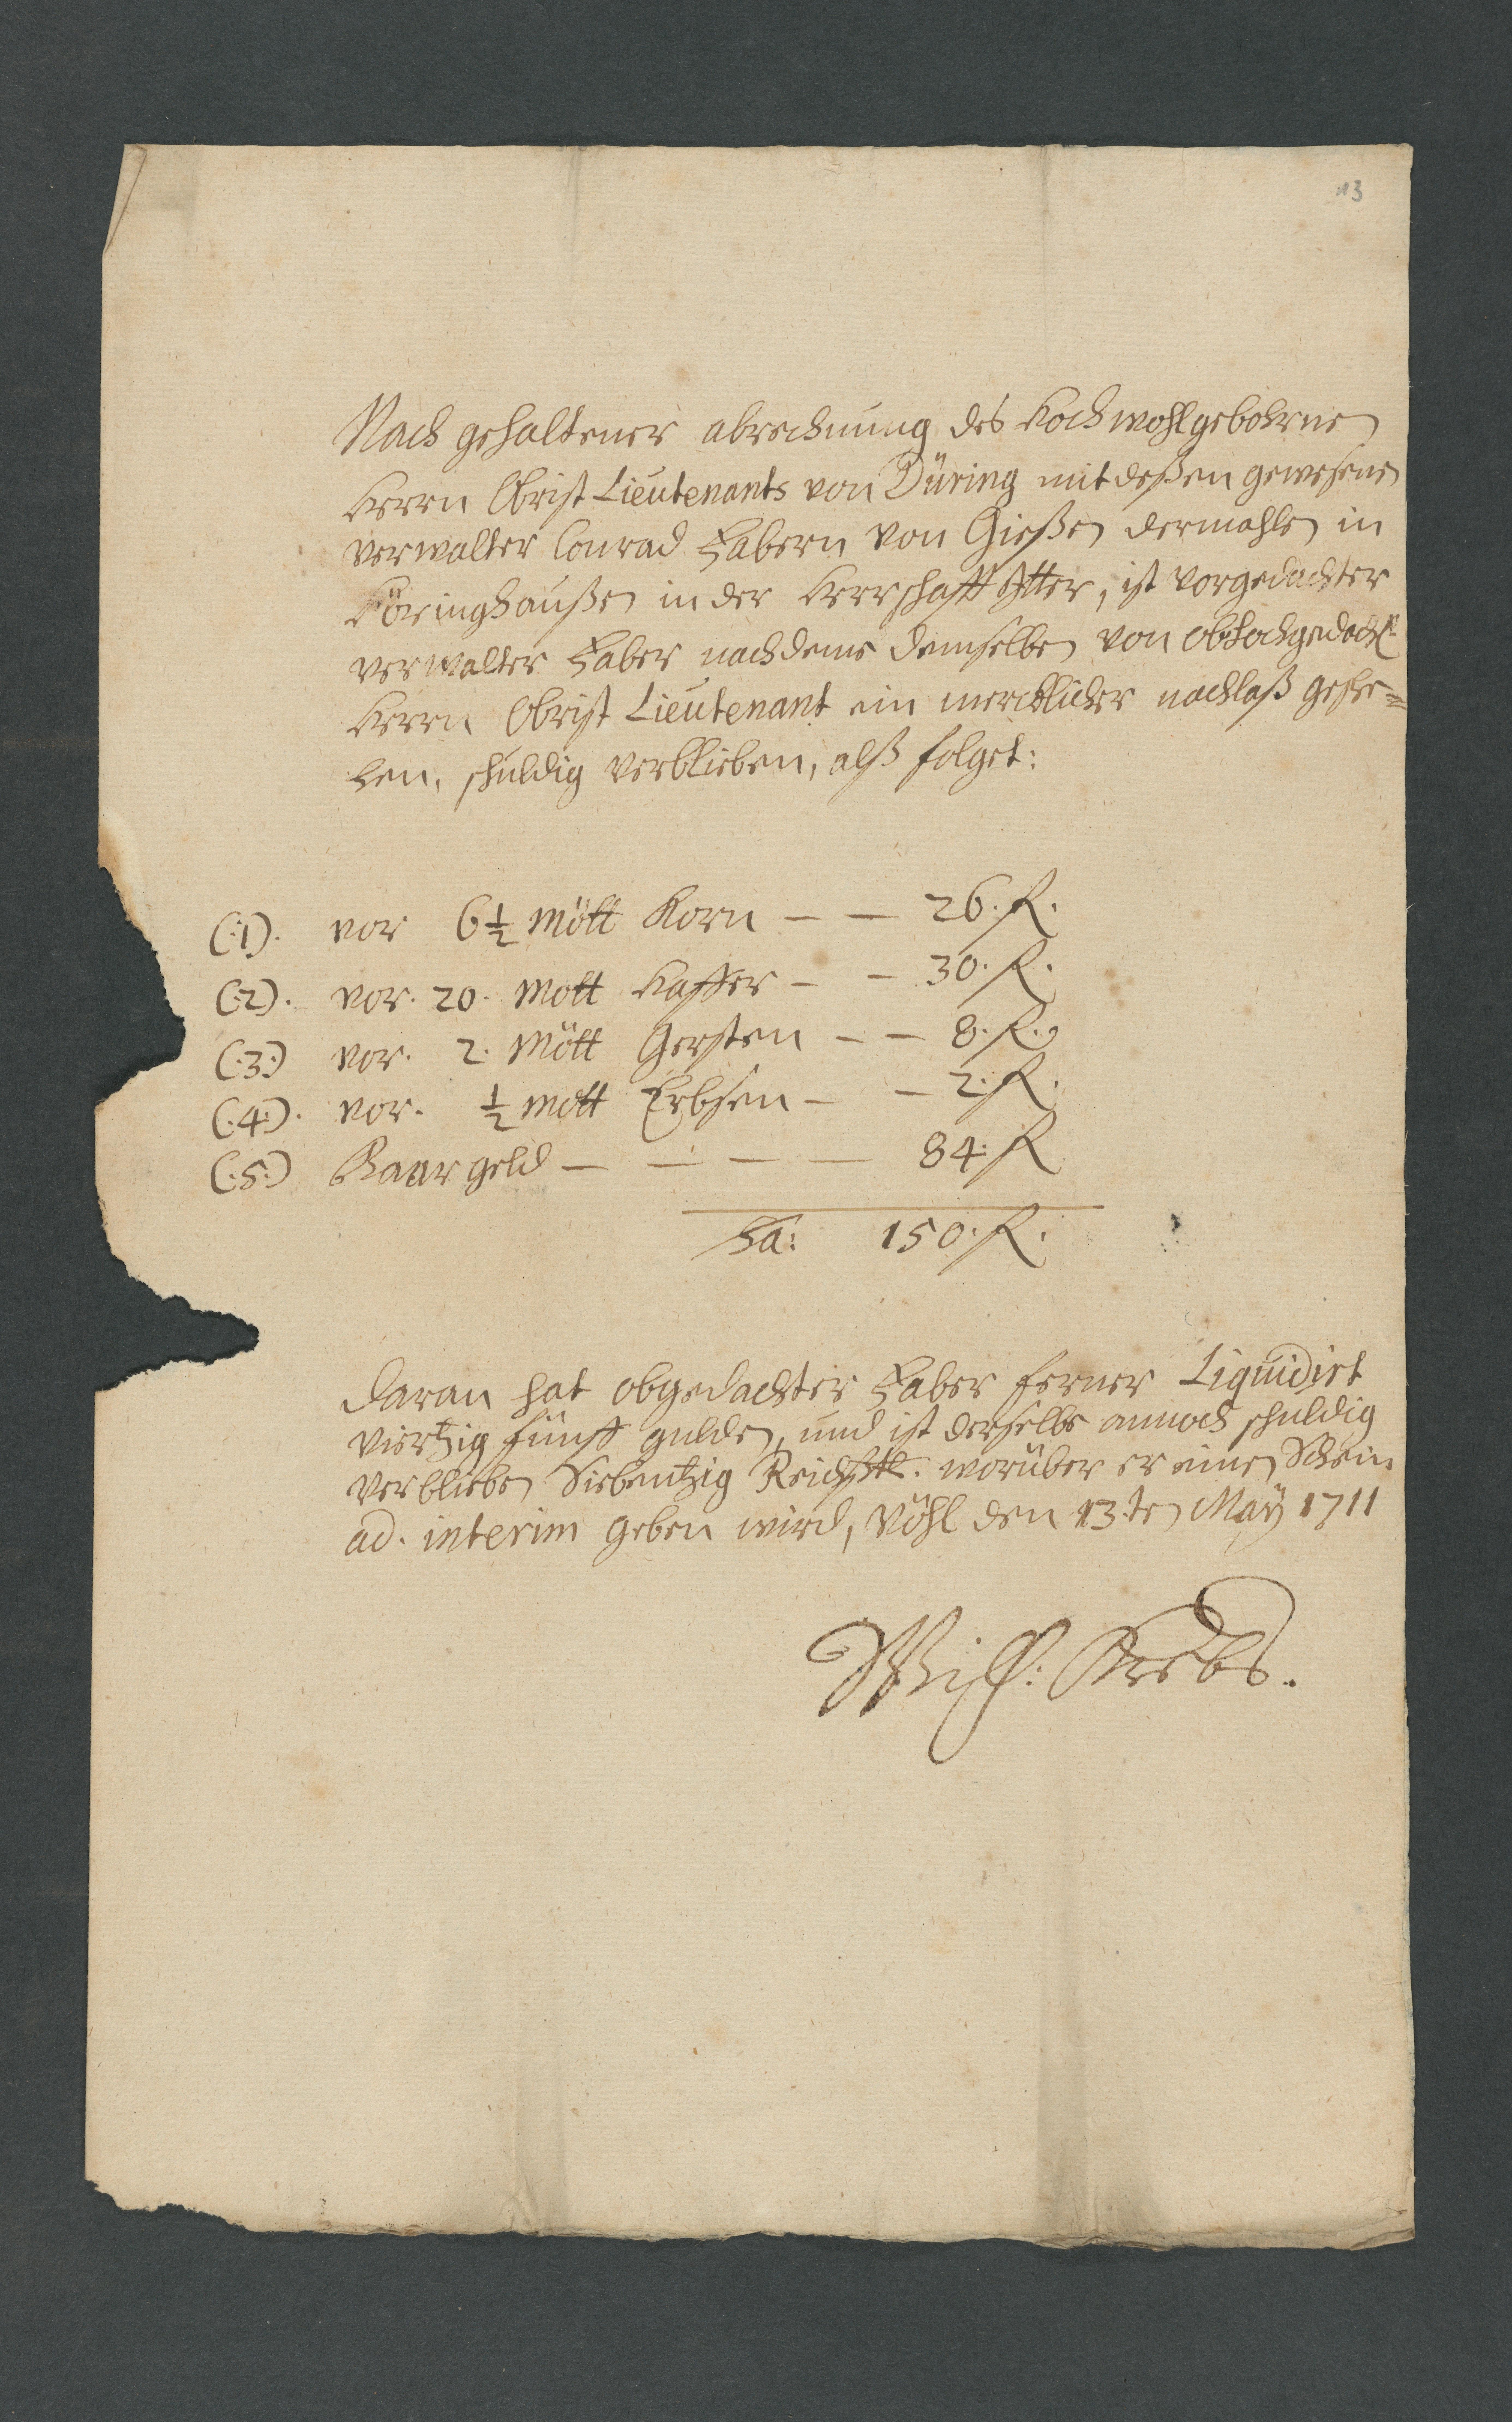 13
Nach gehaltener abrechnung des Hochwohlgebohrnen
Herrn Obrist Lieutenants von Düring mit deßen gewesenen
verwalter Conrad Fabern von Gießen dermahlen in
Höringhaußen in der Herrschafft Itter, ist vorgedachter
verwalter Faber nachdeme demselben von obhochgedacht.
Herrn Obrist Lieutenant ein mercklicher nachlaß gesche=
hen, schuldig verblieben, alß folget:
(:1). vor 6 1/2 Mött Korn — — 26. fl.
(:2). vor. 20. Mött Haffer — — 30. fl.
(:3:) vor. 2. Mött Gersten — — 8. fl.
(:4:). vor. 1/2 Mött Erbsen — — 2. fl.
(:5:) Baar geld — — — — 84: fl
Sa: 150. fl.
Daran hat obgedachter Faber ferner Liquidirt
viertzig fünff gulden, und ist derselbe annoch schuldig
verblieben Siebentzig Reichsthl. worüber er einen Schein
ad. interim geben wird, Vöhl den 13.ten Maÿ 1711
Krebs.